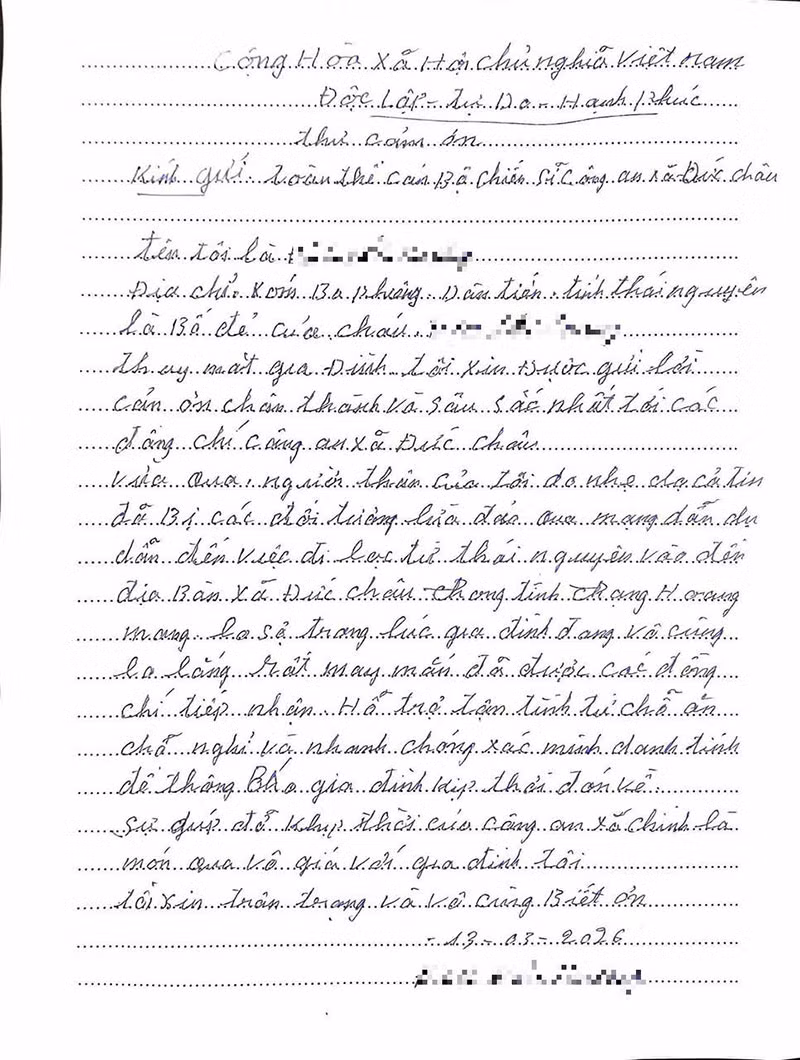 Cộng Hòa xã Hội chủ nghĩa Việt nam
Độc Lập - tự Do - Hạnh Phúc
thư cảm ơn
Kính gửi. toàn thể cán Bộ chiến sĩ công an xã Đức châu
tên tôi là
Địa chỉ. xóm Ba phường. Dân tiến. tỉnh thái nguyên
là Bố đẻ của cháu.
thay mặt gia Đình tôi xin Được gửi lời
cản ơn chân thành và sâu sắc nhất tới các
đồng chí công an xã Đức châu
vừa qua. người thân của tôi do nhẹ dạ cả tin
đã Bị các đối tượng lừa đảo qua mạng dẫn dụ
dẫn đến việc đi lạc từ thái nguyên vào đến
địa Bàn xã Đức châu trong tình trạng Hoang
mang lo sợ trong lúc gia đình đang vô cùng
lo lắng rất may mắn đã được các đồng
chí tiếp nhận. Hỗ trợ tận tình từ chỗ ăn
chỗ nghỉ và nhanh chóng xác minh danh tính
để thông Báo gia đình kịp thời đón về
sự giúp đỡ kịp thời của công an xã chính là
món qua vô giá với gia đình tôi
tôi xin trân trọng và vô cùng Biết ơn
- 13 - 03 - 2026